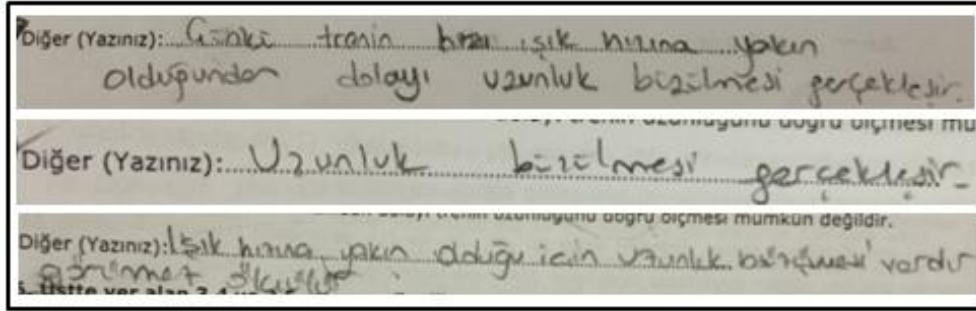 Diğer (Yazınız): Çünkü trenin hızı ışık hızına yakın
olduğundan dolayı uzunluk büzülmesi gerçekleşir.
uzunluğunu doğru ölçmesi mü
Diğer (Yazınız): Uzunluk büzülmesi gerçekleşir.
trenin uzunluğunu doğru ölçmesi mümkün değildir.
Diğer (Yazınız): Işık hızına yakın olduğu için uzunluk büzülmesi vardır
5. Üstte yer alan 3.4